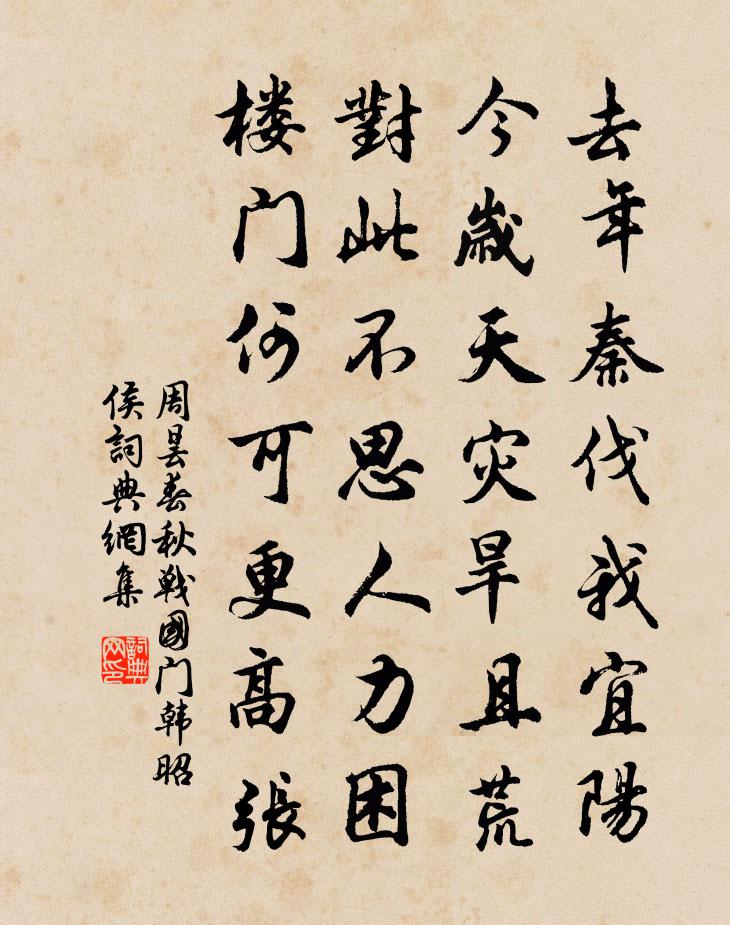 去年秦伐我宜陽
今歲天灾旱且荒
對此不思人力困
楼门何可更高張
周昙春秋戰國门韩昭
侯詞典網集
詞典
网印